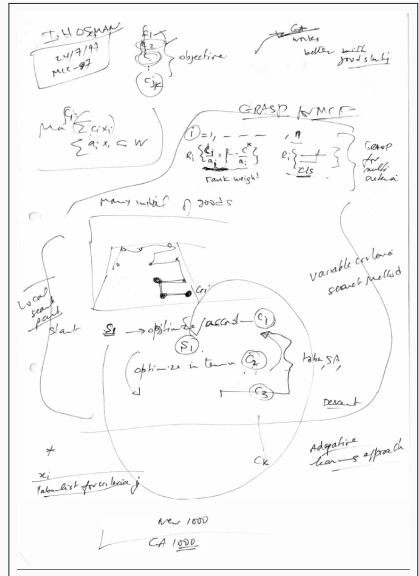 I. H OSMAN
24/7/97
MIC-97
C1
C2
Cj
Cjk
objective
GA
works
better with
good starting
Max Σ cixi
Σ ai xi ≤ W
GRASP for MCP
i = 1, - - - - - , n
Ri { - - - }
rank weight
Ri { }
cls
GRASP
for
multi
criteria
many initial of goods
Cri
Local
search
part
Start
S1 → optimize / accord - C1
S1
optimize in term C2
C3
tabu, SA,
Descent
variable criteria
search method
Ck
Adaptive
learning approach
*
xi
Tabu list for criteria j
New 1000
GA 1000